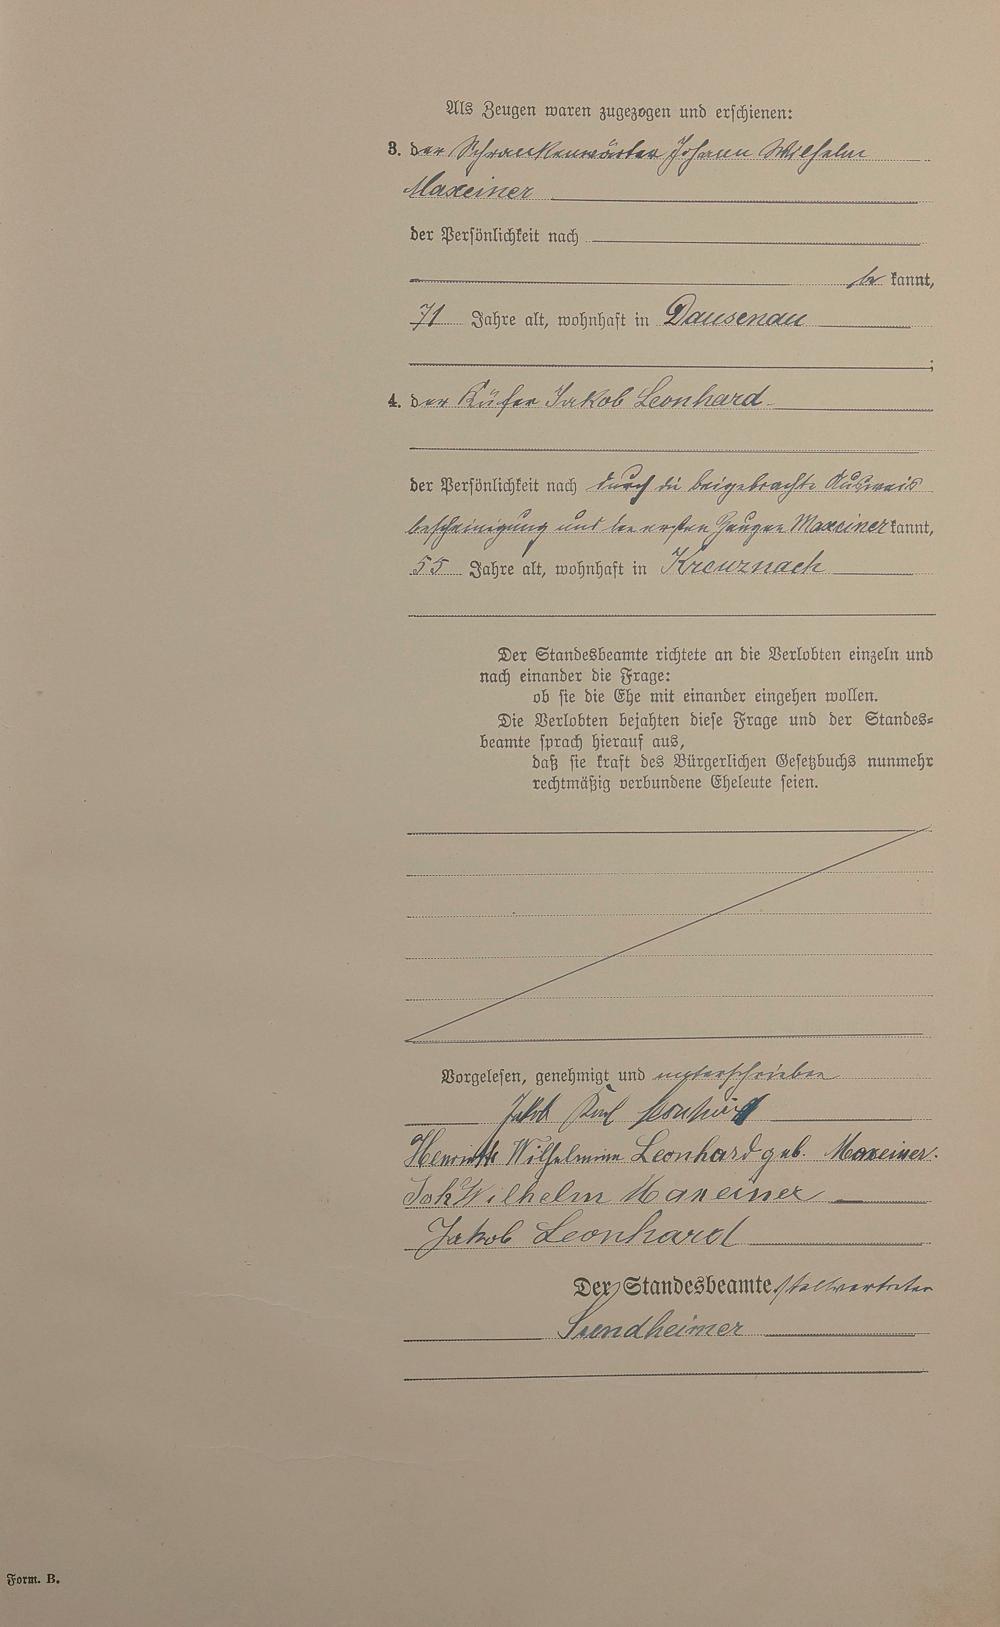 Als Zeugen waren zugezogen und erschienen:
3. der Schrankenwärter Johann Wilhelm
Maxeiner
der Persönlichkeit nach
be kannt,
71 Jahre alt, wohnhaft in Dausenau
;
4. der Küfer Jakob Leonhard
der Persönlichkeit nach durch die beigebrachte Ausweis
bescheinigung und den ersten Zeugen Maxeiner kannt,
55 Jahre alt, wohnhaft in Kreuznach
Der Standesbeamte richtete an die Verlobten einzeln und
nach einander die Frage:
ob sie die Ehe mit einander eingehen wollen.
Die Verlobten bejahten diese Frage und der Standes-
beamte sprach hierauf aus,
daß sie kraft des Bürgerlichen Gesetzbuchs nunmehr
rechtmäßig verbundene Eheleute seien.
Vorgelesen, genehmigt und unterschrieben
Jakob Karl Leonhard
Henriette Wilhelmine Leonhard geb. Maxeiner.
Joh Wilhelm Maxeiner
Jakob Leonhard
Der Standesbeamte stellvertreter
Form. B.